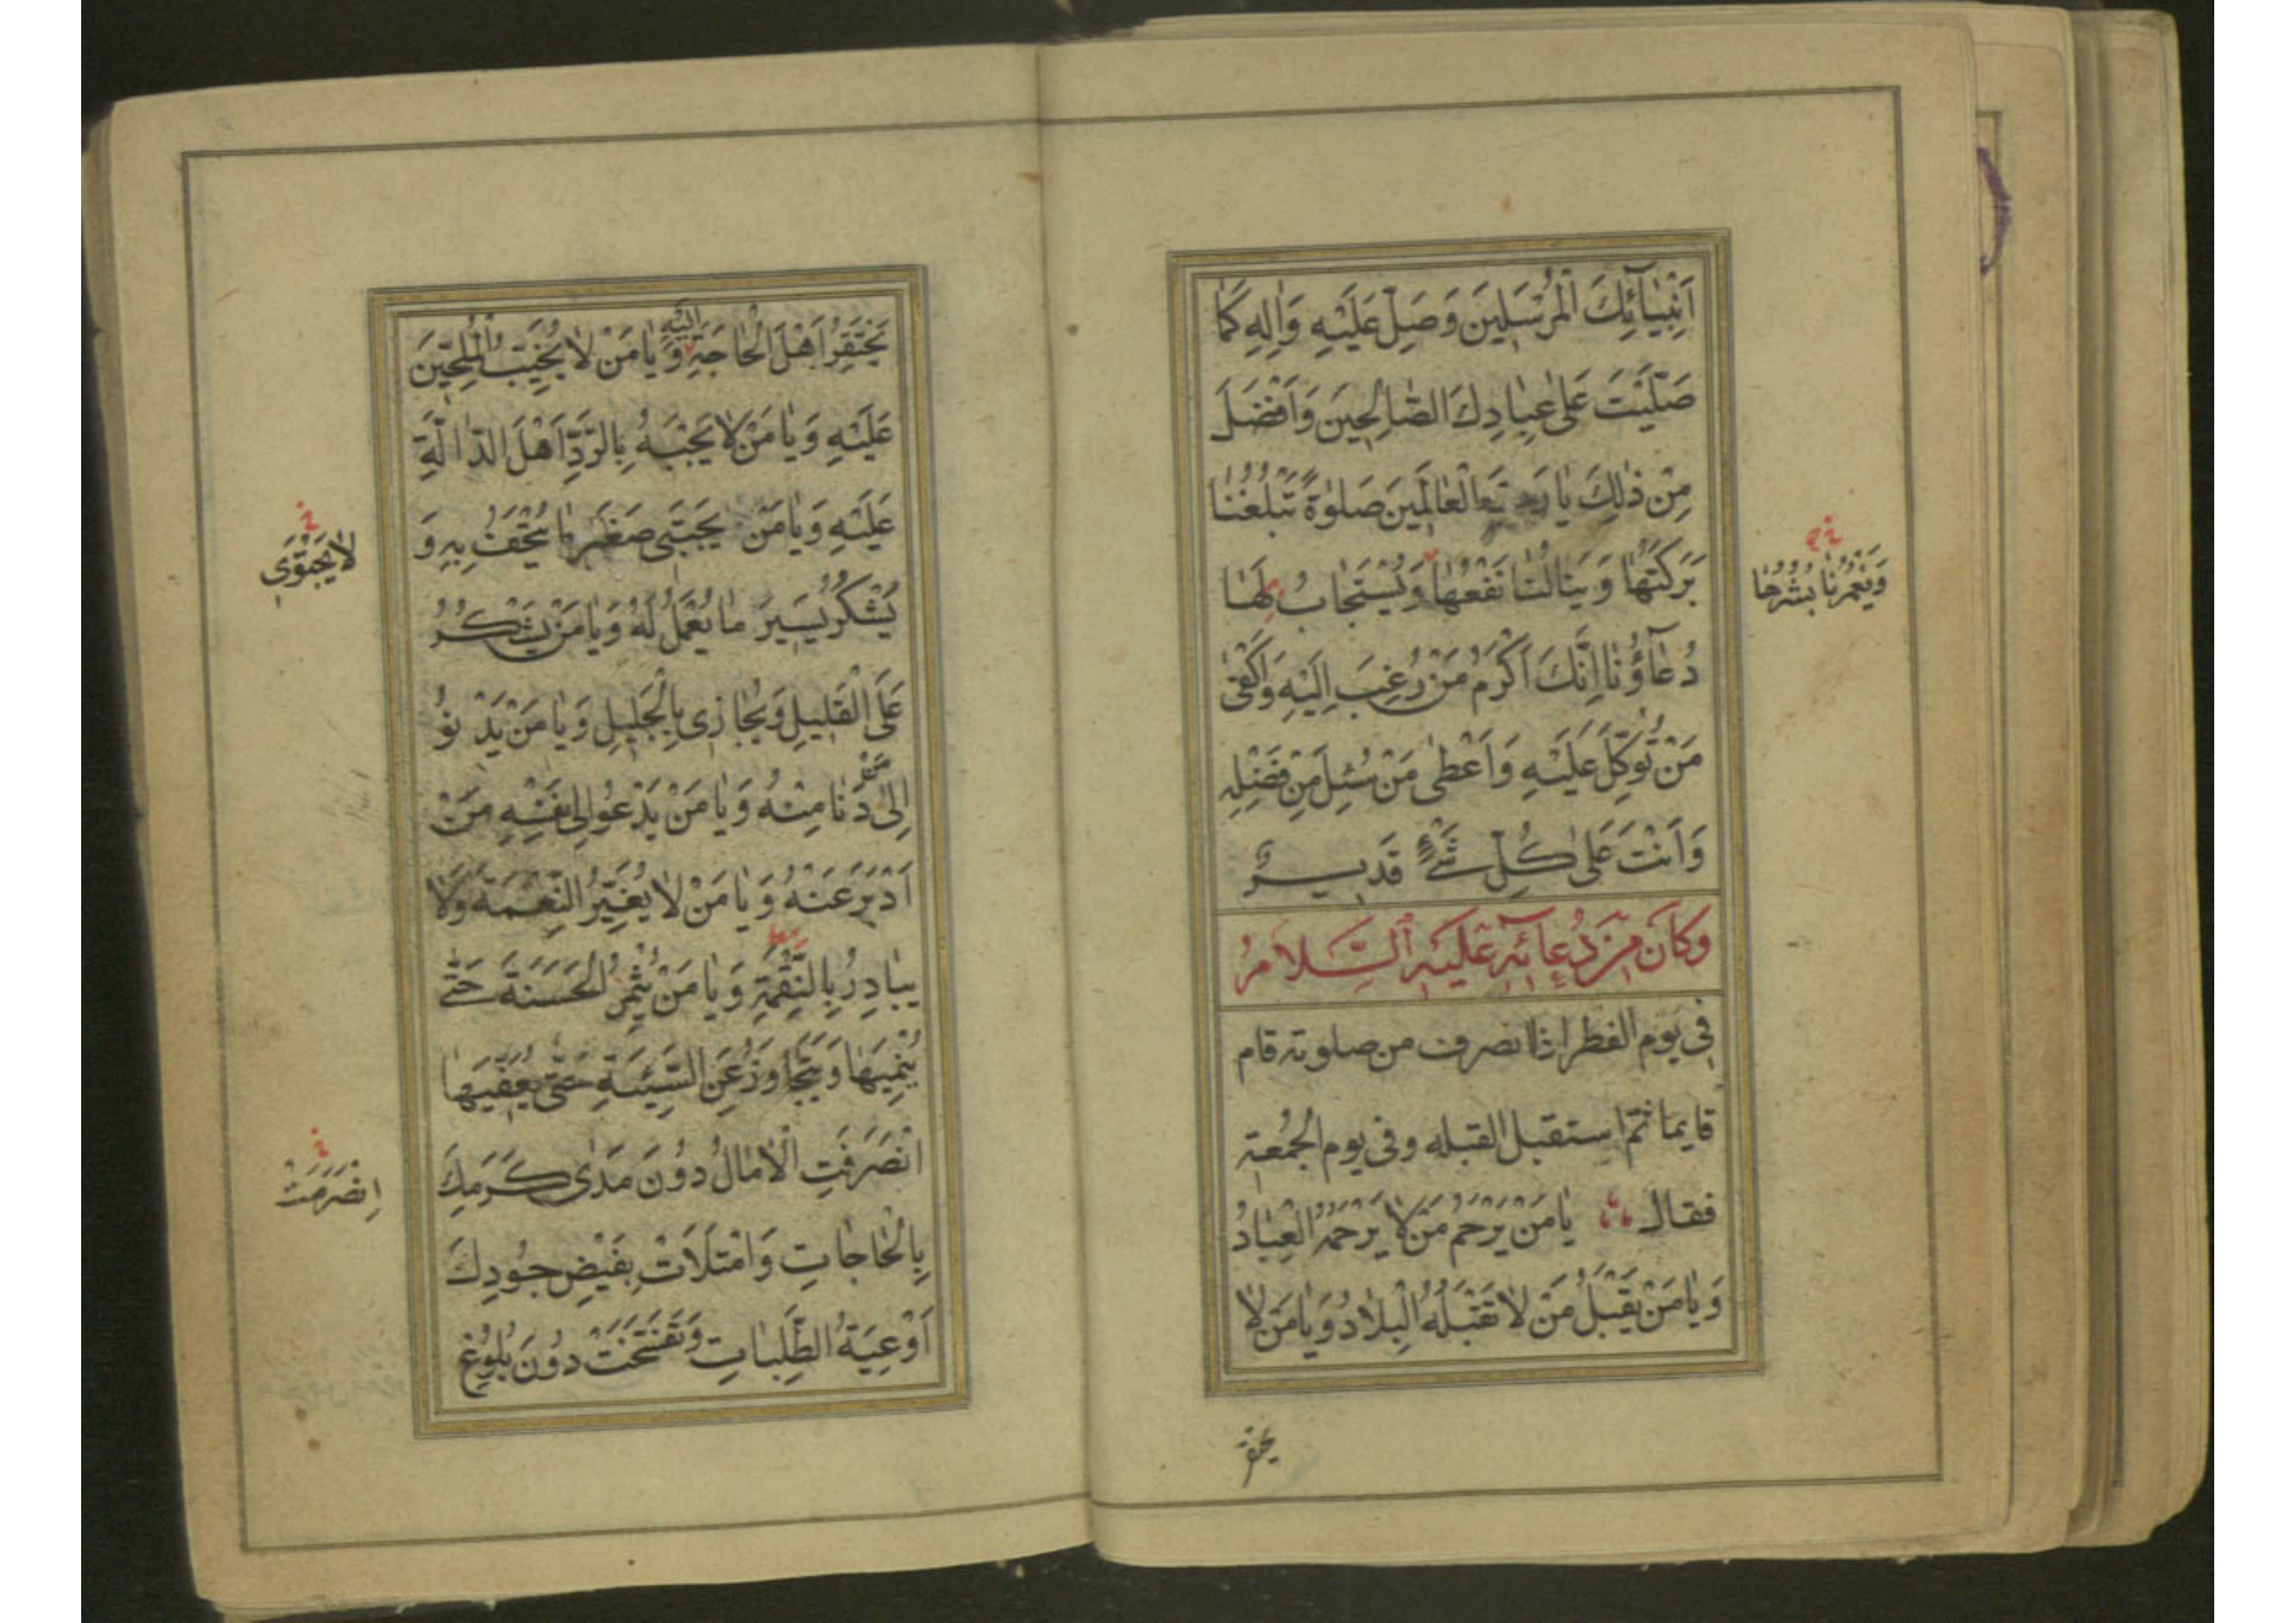 اَنْبِيٰآئِكَ الْمُرْسَلِينَ وَصَلِّ عَلَيْهِ وَاٰلِهِ كَمٰا
صَلَّيْتَ عَلىٰ عِبٰادِكَ الصّٰالِحِينَ وَاَفْضَلَ
مِنْ ذٰلِكَ يٰا رَبَّ الْعٰالَمِينَ صَلوٰةً تَبْلُغُنٰا
بَرَكَتُهٰا وَيَنٰالُنٰا نَفْعُهٰا وَيُسْتَجٰابُ لَهٰا
وَيَغْمُرُنٰا بُشْرُهٰا
دُعٰآؤُنٰا اِنَّكَ اَكْرَمُ مَنْ رُغِبَ اِلَيْهِ وَاَكْفىٰ
مَنْ تُوُكِّلَ عَلَيْهِ وَاَعْطىٰ مَنْ سُئِلَ مِنْ فَضْلِهِ
وَاَنْتَ عَلىٰ كُلِّ شَيْءٍ قَدِيرٌ
وَكَانَ مِنْ دُعَائِهِ عَلَيْهِ السَّلَامُ
فى يوم الفطر اذا انصرف من صلوته قام
قايما ثم استقبل القبله وفى يوم الجُمُعة
فقال يٰا مَنْ يَرْحَمُ مَنْ لٰا يَرْحَمُهُ الْعِبٰادُ
وَيٰا مَنْ يَقْبَلُ مَنْ لٰا تَقْبَلُهُ الْبِلٰادُ وَيٰا مَنْ لٰا
يحتقر
يَحْتَقِرُ اَهْلَ الْحٰاجَةِ اِلَيْهِ وَيٰا مَنْ لٰا يُخَيِّبُ الْمُلِحِّينَ
عَلَيْهِ وَيٰا مَنْ لٰا يَجْبَهُ بِالرَّدِّ اَهْلَ الدّٰالَّةِ
عَلَيْهِ وَيٰا مَنْ يَجْتَبِى صَغِيرَ مٰا يُتْحَفُ بِهِ وَ
لٰا يَجْتَوِى
يَشْكُرُ يَسِيرَ مٰا يُعْمَلُ لَهُ وَيٰا مَنْ يَشْكُرُ
عَلَى الْقَلِيلِ وَيُجٰازِى بِالْجَلِيلِ وَيٰا مَنْ يَدْنُو
اِلىٰ مَنْ دَنٰا مِنْهُ وَيٰا مَنْ يَدْعُو اِلىٰ نَفْسِهِ مَنْ
اَدْبَرَ عَنْهُ وَيٰا مَنْ لٰا يُغَيِّرُ النِّعْمَةَ وَلٰا
يُبٰادِرُ بِالنِّقْمَةِ وَيٰا مَنْ يُثْمِرُ الْحَسَنَةَ حَتّىٰ
يُنْمِيَهٰا وَيَتَجٰاوَزُ عَنِ السَّيِّئَةِ حَتّىٰ يُعَفِّيَهٰا
انْصَرَفَتِ الْاٰمٰالُ دُونَ مَدىٰ كَرَمِكَ
اِنْصَرَمَتْ
بِالْحٰاجٰاتِ وَامْتَلَاَتْ بِفَيْضِ جُودِكَ
اَوْعِيَةُ الطَّلِبٰاتِ وَتَفَسَّخَتْ دُونَ بُلُوغِ